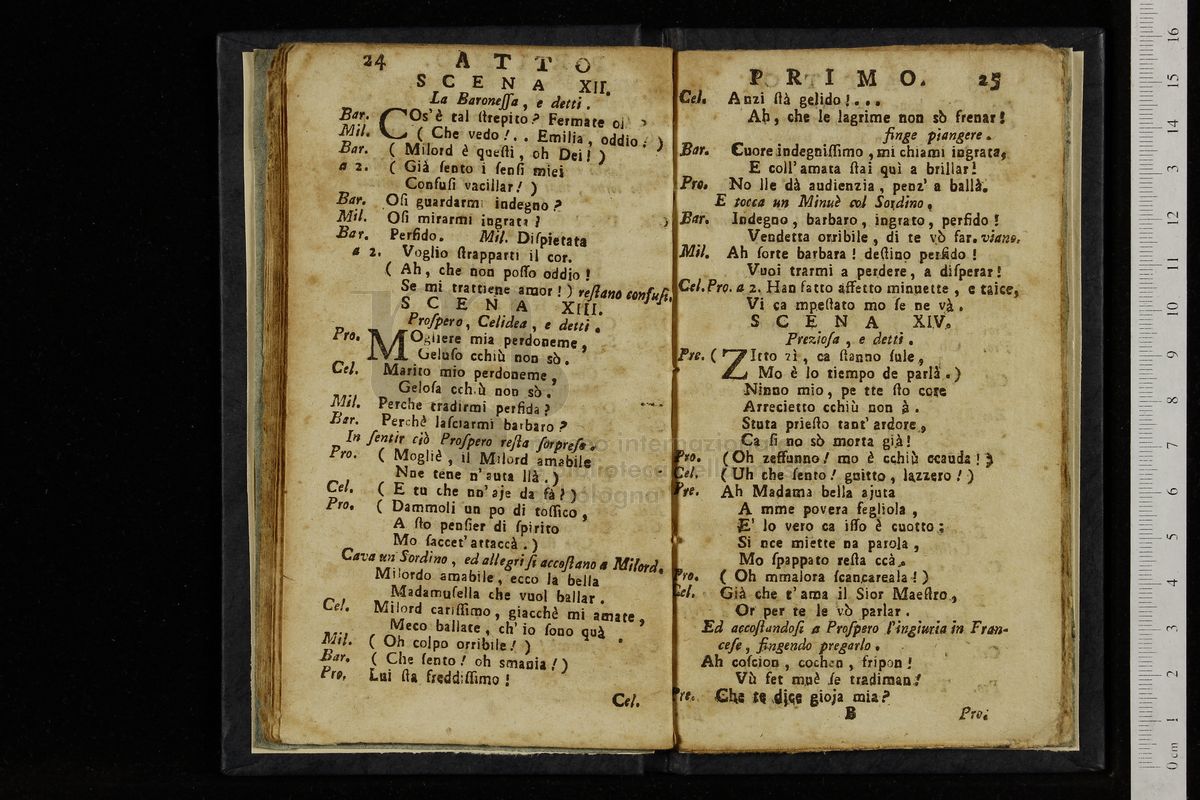 24 ATTO
SCENA XII.
La Baronessa, e detti.
Bar. COs'è tal strepito? Fermate
Mil. ( Che vedo!.. Emilia, oddio! )
Bar. ( Milord è questi, oh Dei! )
a 2. ( Già sento i sensi miei
Confusi vacillar! )
Bar. Osi guardarmi indegno?
Mil. Osi mirarmi ingrata?
Bar. Perfido. Mil. Dispietata
a 2. Voglio strapparti il cor.
( Ah, che non posso oddio!
Se mi trattiene amor! ) restano confusi.
SCENA XIII.
Prospero, Celidea, e detti.
Pro. MOgliere mia perdoneme,
Geluso cchiù non sò.
Cel. Marito mio perdoneme,
Gelosa cchiù non sò.
Mil. Perche tradirmi perfida?
Bar. Perchè lasciarmi barbaro?
In sentir ciò Prospero resta sorpreso.
Pro. ( Mogliè, il Milord amabile
Nne tene n'auta llà. )
Cel. ( E tu che nn'aje da fà? )
Pro. ( Dammoli un po di tossico,
A sto pensier di spirito
Mo saccet'attaccà. )
Cava un Sordino, ed allegri si accostano a Milord.
Milordo amabile, ecco la bella
Madamusella che vuol ballar.
Cel. Milord carissimo, giacchè mi amate,
Meco ballate, ch'io sono quà.
Mil. ( Oh colpo orribile! )
Bar. ( Che sento! oh smania! )
Pro. Lui sta freddissimo!
Cel.
PRIMO. 25
Cel. Anzi stà gelido!...
Ah, che le lagrime non sò frenar!
finge piangere.
Bar. Cuore indegnissimo, mi chiami ingrata,
E coll'amata stai quì a brillar!
Pro. No lle dà audienzia, penz' a ballà.
E tocca un Minuè col Sordino.
Bar. Indegno, barbaro, ingrato, perfido!
Vendetta orribile, di te vò far. viano.
Mil. Ah sorte barbara! destino perfido!
Vuoi trarmi a perdere, a disperar!
Cel. Pro. a 2. Han fatto affetto minuette, e taice,
Vi ca mpestato mo se ne và.
SCENA XIV.
Preziosa, e detti.
Pre. ( ZItto zì, ca stanno sule,
Mo è lo tiempo de parlà. )
Ninno mio, pe tte sto core
Arrecietto cchiù non à.
Stuta priesto tant' ardore,
Ca si no sò morta già!
Pro. (Oh zeffunno! mo è cchiù ccauda!)
Cel. (Uh che sento! guitto, lazzero!)
Pre. Ah Madama bella ajuta
A mme povera fegliola,
E' lo vero ca isso è cuotto;
Si nce miette na parola,
Mo spappato resta ccà.
Pro. ( Oh mmalora scancareala! )
Cel. Già che t'ama il Sior Maestro,
Or per te le vò parlar.
Ed accostandosi a Prospero l'ingiuria in Fran-
cese, fingendo pregarlo.
Ah coscion, cochen, fripon!
Vù fet muè se tradiman!
Pre. Che te dice gioja mia?
B Pro.